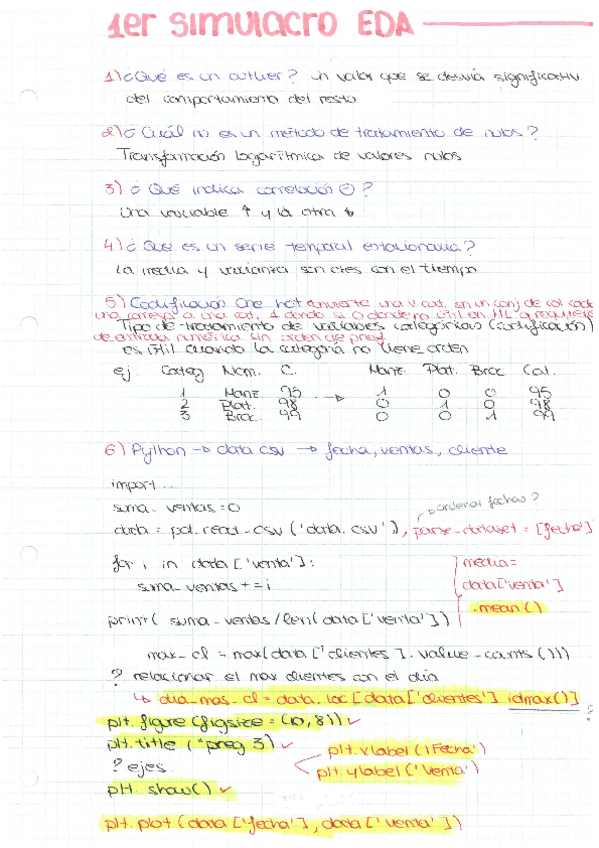 1er simulacro EDA
1) ¿Qué es un outlier? un valor que se desvía significativ.
del comportamiento del resto
2) ¿Cuál no es un método de tratamiento de nulos?
Transformación logarítmica de valores nulos
3) ¿Qué indica correlación ⊖?
Una variable ↑ y la otra ↓
4) ¿Qué es un serie temporal estacionaria?
La media y varianza son ctes con el tiempo
5) Codificación One hot convierte una v. cat. en un conj de col cada
una corresp a una cat, 1 donde si 0 donde no útil en ML q requiere
Tipo de tratamiento de variables categóricas (codificación)
de entrada numérica sin orden de pref
es útil cuando la categoría no tiene orden
ej. Categ Nom. C. Manz. Plat. Broc Cal.
1 Manz 95 → 1 0 0 95
2 Plat. 98 0 1 0 98
3 Broc. 99 0 0 1 99
6) Python → data csv → fecha, ventas, cliente
import ..
suma_ventas = 0 → ordenar fechas?
data = pd.read_csv ('data.csv'), parse_dataset = [fecha]
for i in data ['venta']: media =
suma_ventas += i data['venta']
.mean()
print( suma_ventas / len( data ['venta'])
max_cl = max(data ['clientes'].value_counts ()))
? relacionar el max clientes con el día
↳ dia_mas_cl = data.loc [data['clientes'].idmax()]
?
plt.figure (figsize = (10, 8)) ✓
plt.title ("preg 3) ✓ plt.xlabel ('Fecha')
? ejes plt.ylabel ('Venta')
plt.show() ✓
plt.plot (data ['fecha'], data ['venta'])